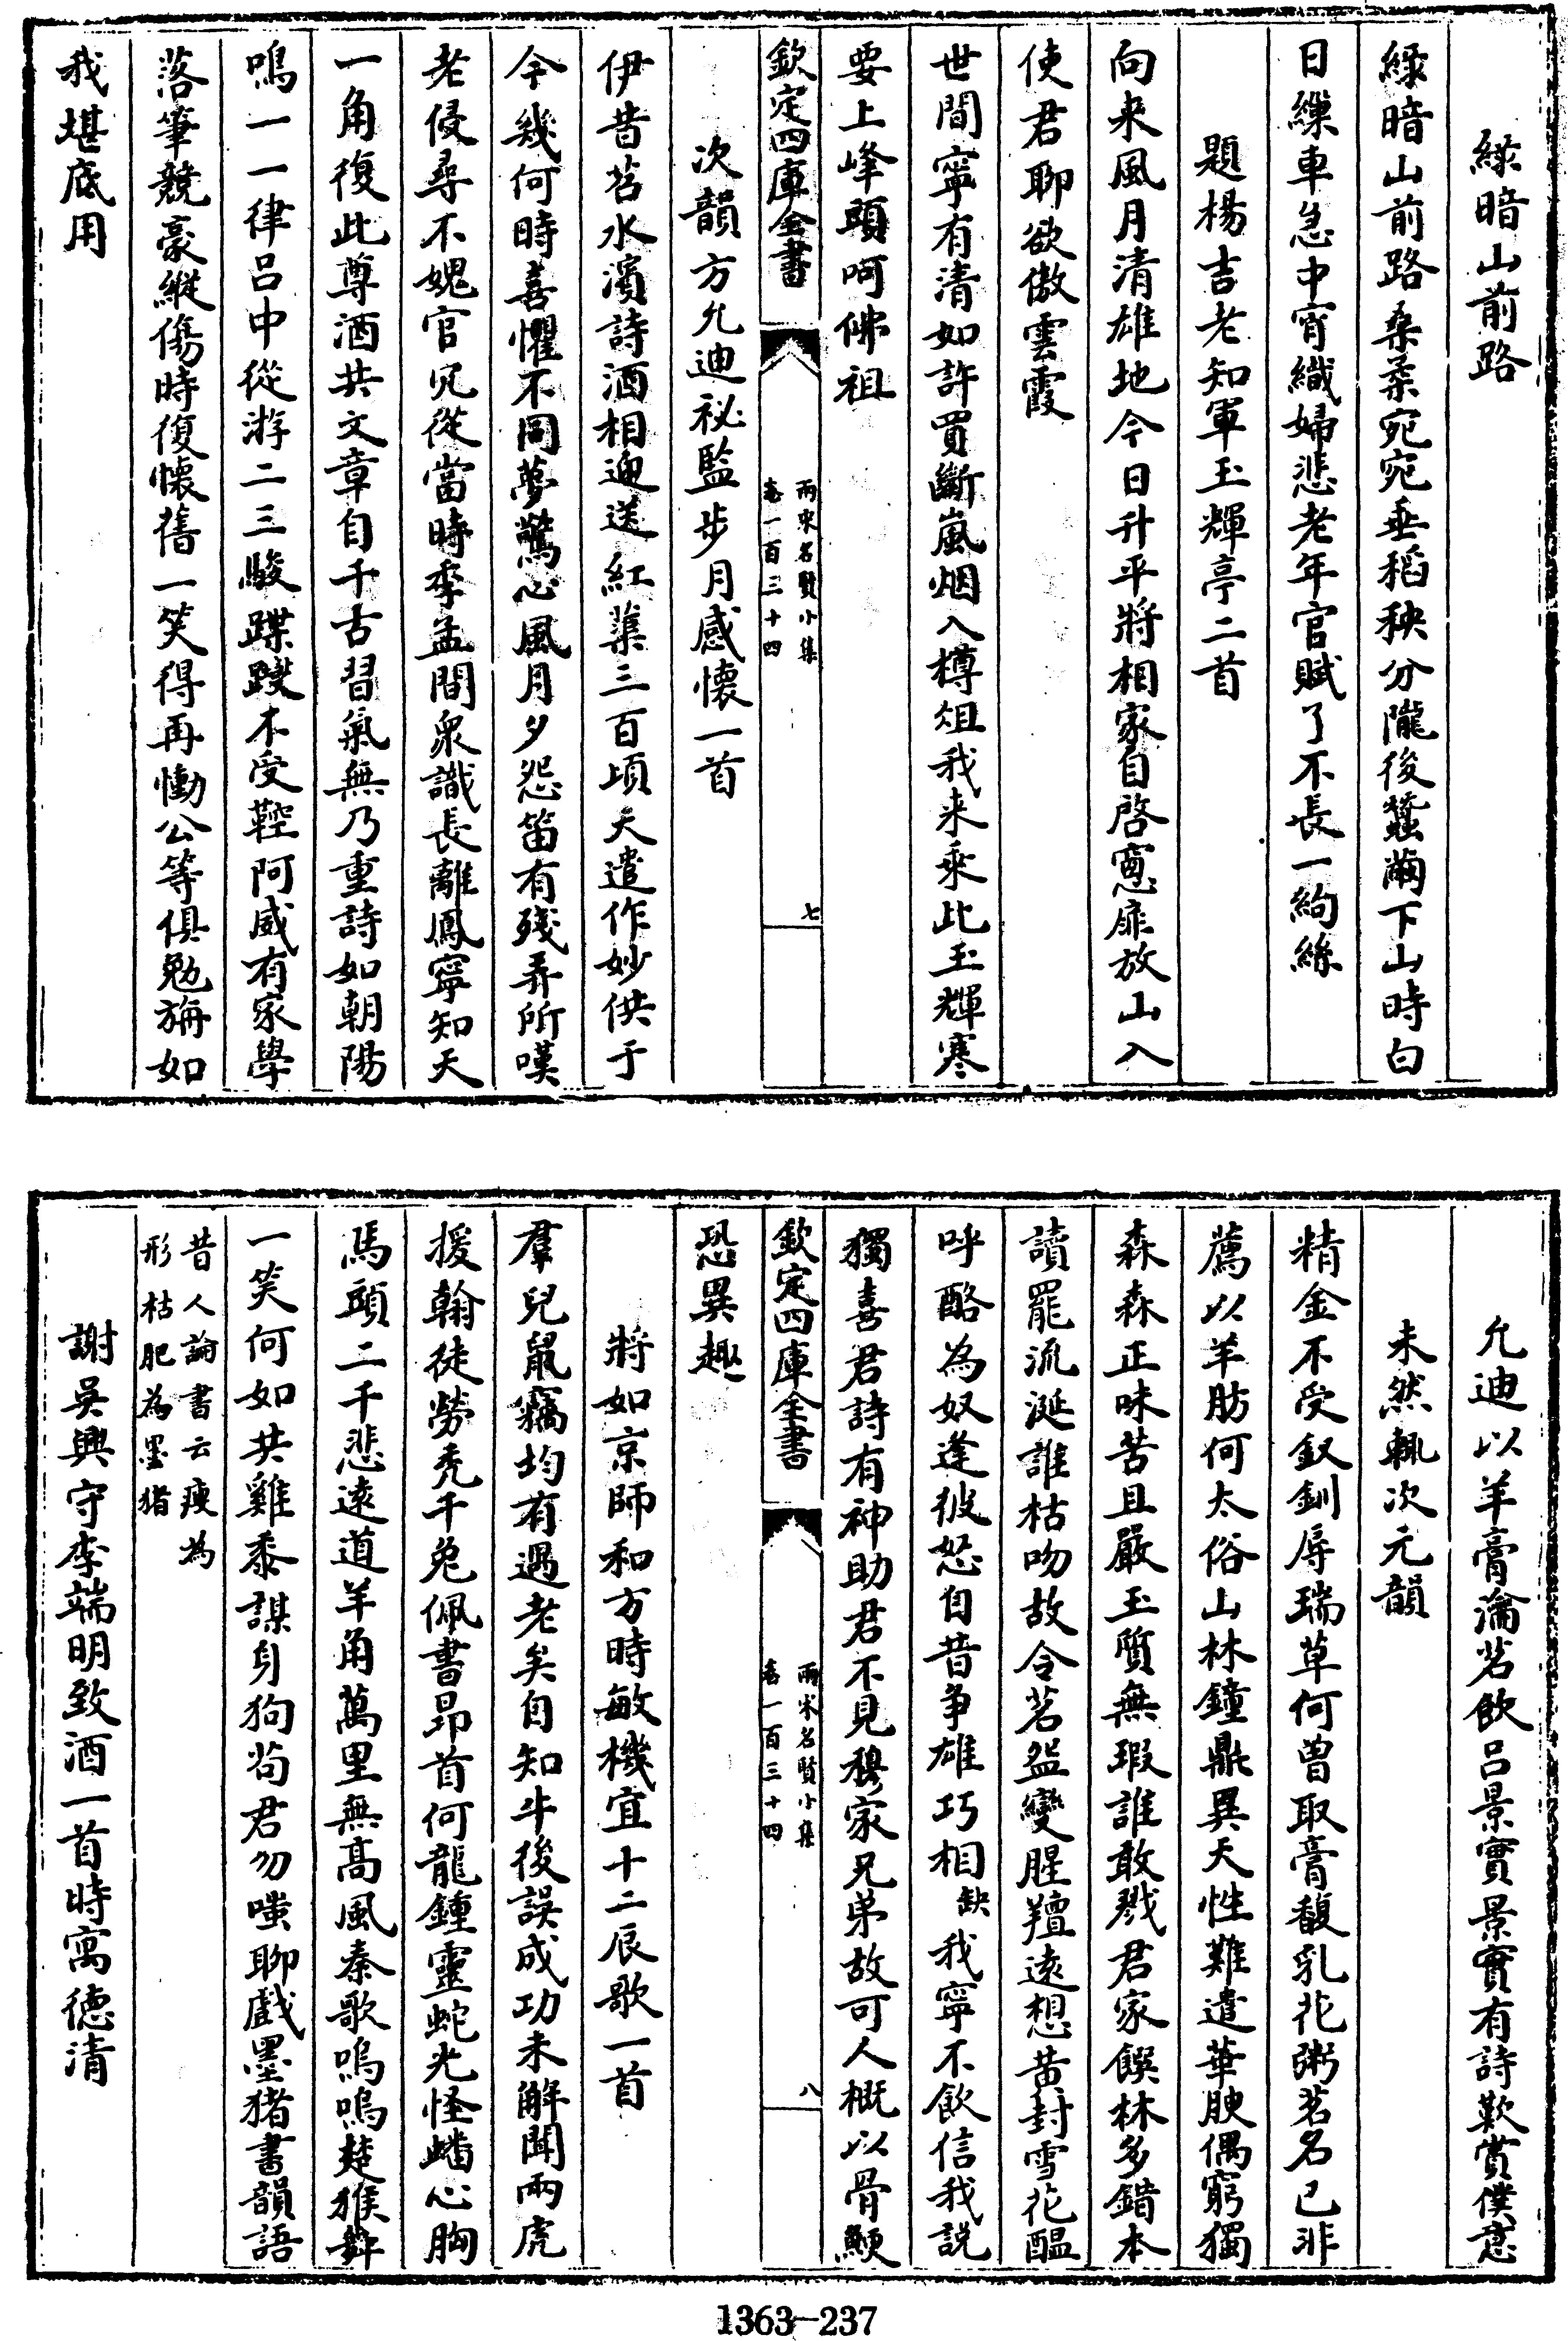 綠暗山前路
綠暗山前路桑柔宛宛垂稻秧分隴後蠶繭下山時白
日繅車急中宵織婦悲老年官賦了不長一絇絲
題楊吉老知軍玉輝亭二首
向来風月清雄地今日升平將相家自啓窻扉放山入
使君聊欲傲雲霞
世間寧有清如許買斷嵐烟入樽俎我来乘此玉輝寒
要上峰頭呵佛祖
欽定四庫全書
兩宋名賢小集
卷一百三十四
七
次韻方允迪秘監步月感懐一首
伊昔苕水濱詩酒相迎送紅蕖三百頃天遣作妙供于
今幾何時喜懼不同夢驚心風月夕怨笛有殘弄所嘆
老侵尋不媿官冗從當時季孟間衆識長離鳳寧知天
一角復此尊酒共文章自千古習氣無乃重詩如朝陽
鳴一一律吕中從游二三駿蹀躞不受鞚阿咸有家學
落筆競豪縱傷時復懐舊一笑得再慟公等俱勉旃如
我堪底用
允迪以羊膏瀹茗飲吕景實景實有詩歎賞僕意
未然輒次元韻
精金不受釵釧辱瑞草何曽取膏馥乳花粥茗名已非
薦以羊肪何太俗山林鐘鼎異天性難遣華腴偶窮獨
森森正味苦且嚴玉質無瑕誰敢戮君家饌林多錯本
讀罷流涎誰枯吻故令茗盌變腥羶遠想黄封雪花醖
呼酪為奴逢彼怒自昔争雄巧相缺我寧不飲信我說
獨喜君詩有神助君不見穆家兄弟故可人概以骨鯁
恐異趣
欽定四庫全書
兩宋名賢小集
卷一百三十四
八
將如京師和方時敏機宜十二辰歌一首
羣兒鼠竊均有遇老矣自知牛後誤成功未解鬬兩虎
援翰徒勞秃千兔佩書昂首何龍鍾靈蛇光怪蟠心胸
馬頭二千悲遠道羊角萬里無髙風秦歌嗚嗚楚猴舞
一笑何如共雞黍謀身狗苟君勿嗤聊戲墨猪書韻語
昔人論書云瘦為
形枯肥為墨猪
謝吳興守李端明致酒一首時寓德清
1363-237